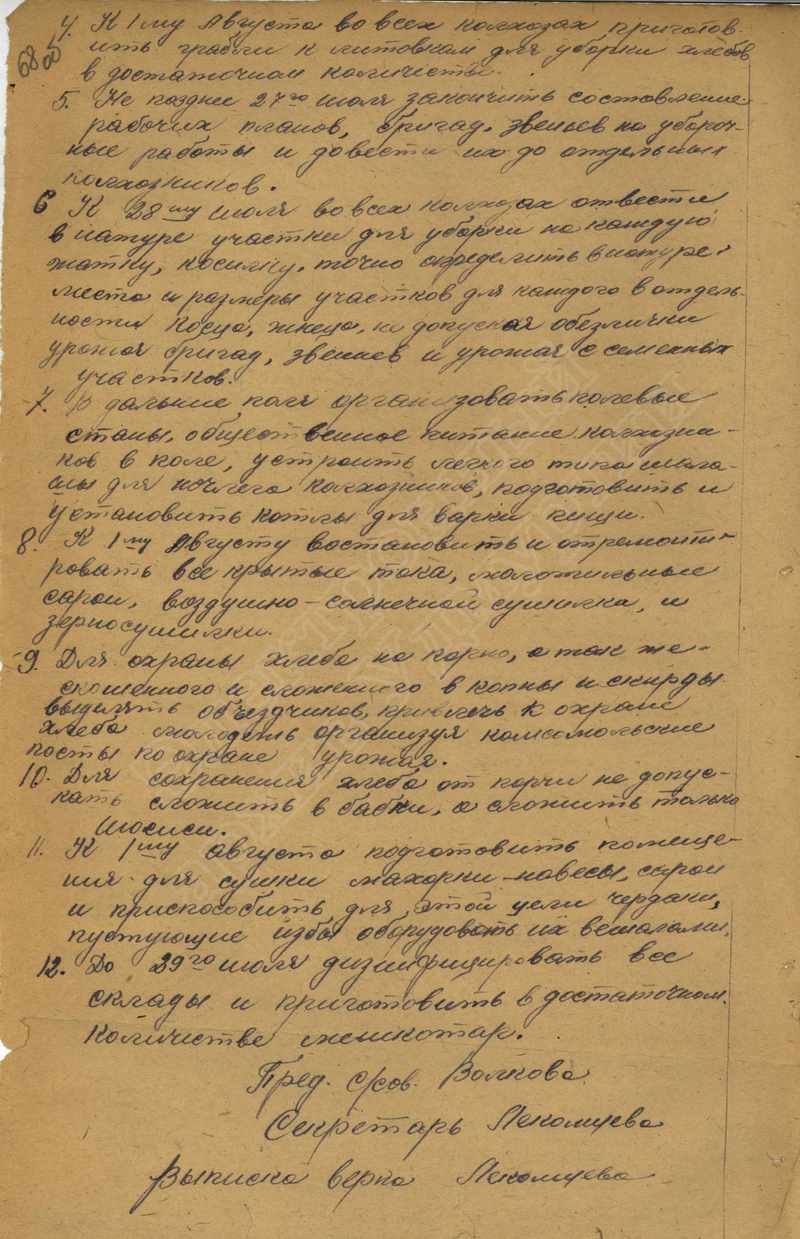 68 об
4. К 1му Августа во всех колхозах приготов-
ить грабли к литовкам для уборки хлебов
в достаточном количестве.
5. Не поздне 27го июля закончить составление
рабочих планов, бригад, звеньев на убороч-
ные работы и довести их до отдельных
колхозников.
6 К 28му июля во всех колхозах отвести
в натуре участки для уборки на каждую
жатку, косилку, точно определить в натуре
место и размеры участков для каждого в отдель-
ности косца, жнеца, не допуская обезлички
урожая бригад, звеньев и урожая с семенных
участков.
7. В дальние поля организовать полевые
станы, общественное питание колхозни-
ков в поле, устроить легкого типа шала-
шы для ночлега колхозников, подготовить и
установить котлы для варки пищи.
8. К 1му Августу востановить и отремонти-
ровать все крытые тока, молотильные
сараи, воздушно-солнечной сушилка, и
зерносушилки.
9. Для охраны хлеба на корню, а так же
скошенного и сложенного в копны и скирды
выделить объездчиков, привлечь к охране
хлеба молодежь организуя комсомольские
посты по охране урожая.
10. Для сохранения хлеба от порчи не допус-
кать сложить в бабки, а сложить только
11. К 1му августа подготовить помеще-
ния для сушки махорки-навесы, сараи
и приспособить для этой цели чердаки,
пустующие избы оборудовать их вешалами.
12. До 29го июля дизинфицировать все
склады и приготовить в достаточном
количестве мешкотар.
Пред. с/сов. Волкова
Секретарь Лекомцева
Выписка верна Лекомцева